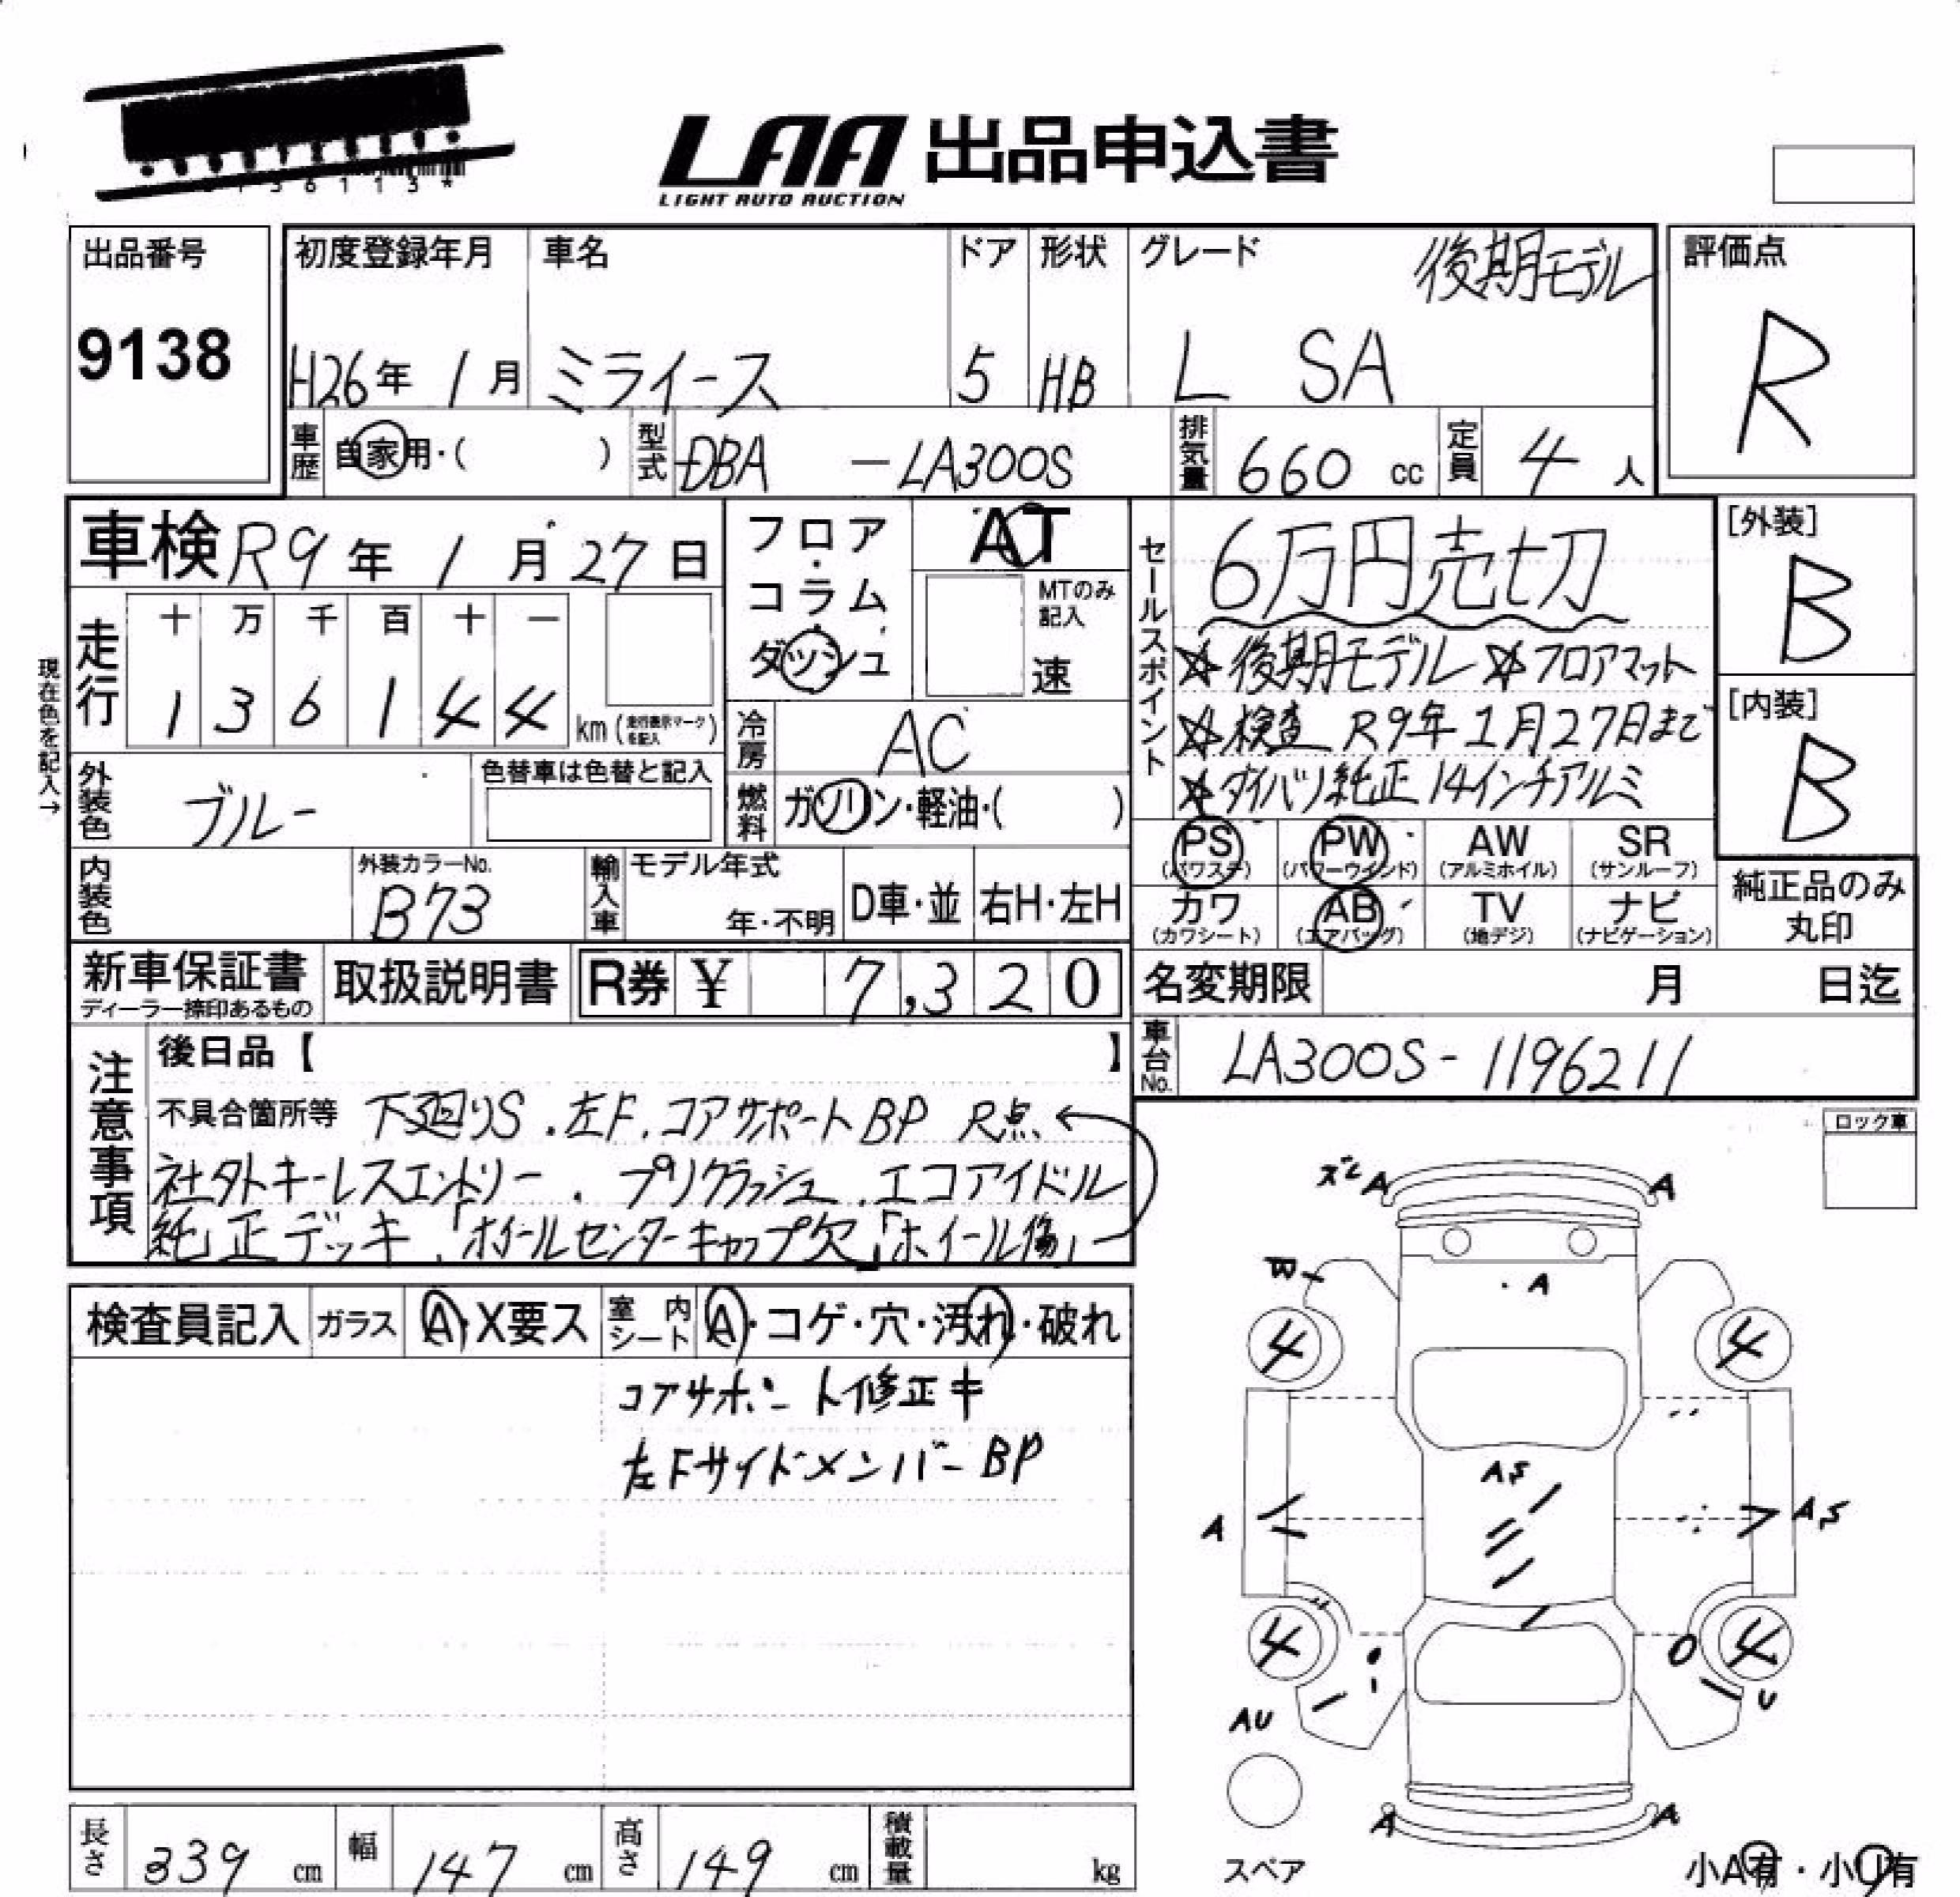 LAA 出品申込書
LIGHT AUTO AUCTION
出品番号
9138
初度登録年月 車名 ドア 形状 グレード 後期モデル
H26年 1月 ミライース 5 HB L SA
評価点
R
車歴 自家用・( ) 型式 DBA - LA300S 排気量 660 cc 定員 4 人
車検 R9年 1月 27日
フロア・コラム・ダッシュ
AT
MTのみ記入
速
セールスポイント
6万円売切
☆後期モデル ☆フロアマット
☆検査 R9年1月27日まで
☆ダイハツ純正14インチアルミ
[外装]
B
[内装]
B
現在色を記入→
走行 十 万 千 百 十 一
1 3 6 1 4 4 km (走行表示マークを記入)
冷房 AC
外装色 ブルー 色替車は色替と記入
燃料 ガソリン・軽油・( )
PS (パワステ) PW (パワーウインド) AW (アルミホイル) SR (サンルーフ)
カワ (カワシート) AB (エアバッグ) TV (地デジ) ナビ (ナビゲーション)
純正品のみ丸印
内装色 外装カラーNo. B73 輸入車 モデル年式 年・不明 D車・並 右H・左H
新車保証書 ディーラー捺印あるもの 取扱説明書 R券 ¥ 7,320
名変期限 月 日迄
車台No. LA300S-1196211
注意事項
後日品【 】
不具合箇所等 下廻りS.左F.コアサポートBP R点
社外キーレスエントリー.プリクラッシュ.エコアイドル
純正デッキ.「ホイールセンターキャップ欠」「ホイール傷」
ロック車
検査員記入 ガラス A・X要ス 室内シート A・コゲ・穴・汚れ・破れ
コアサポート修正キ
左FサイドメンバーBP
ズレ A A
B
A
4 4
AS
A AS
4 4
AU U
A A
スペア
小A有・小U有
長さ 339 cm 幅 147 cm 高さ 149 cm 積載量 kg